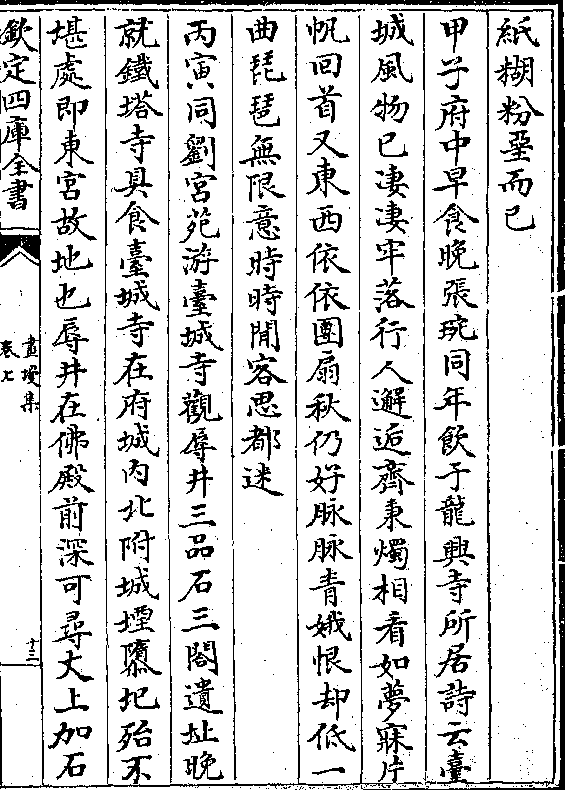 紙糊粉堊而已
甲子府中早食晚張琬同年飲于龍興寺所居詩云臺
城風物已凄凄牢落行人邂逅齊秉燭相看如夢寐片
帆回首又東西依依團扇秋仍好脉脉青娥恨却低一
曲琵琶無限意時時聞客思都迷
丙寅同劉宮苑游臺城寺觀辱井三品石三閣遺址晚
就鐵塔寺具食臺城寺在府城内北附城堙隳圯殆不
堪處即東宮故地也辱井在佛殿前深可尋丈上加石
欽定四庫全書
畫墁集
卷七
十三